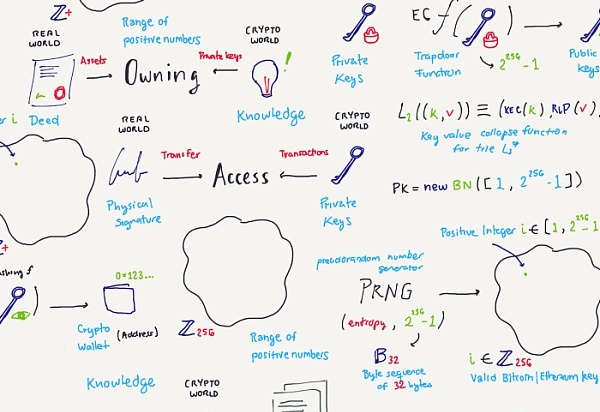 Z+
Range of
positive numbers
REAL
WORLD
Assets
Owning
Private keys
CRYPTO
WORLD
!
Deed
Knowledge
Private
Keys
EC f( )
Trapdoor
Function
2^256-1
Public
Keys
L2((k,v)) ≡ (KEC(k), RLP(v)
Key value collapse function
for trie L3*
er i
REAL
WORLD
Transfer
Access
Transactions
CRYPTO
WORLD
Physical
Signature
Private
Keys
PK = new BN([1, 2^256-1])
Positive Integer i ∈ [1, 2^256-1
Z+
ashing f
)
0x123...
Crypto
Wallet
(Address)
Z256
Range of
positive numbers
pseudorandom number
generator
PRNG
(entropy, 2^256-1)
B32
Byte sequence
of 32 bytes
i ∈ Z256
Valid Bitcoin | Ethereum key
Knowledge
CRYPTO
WORLD